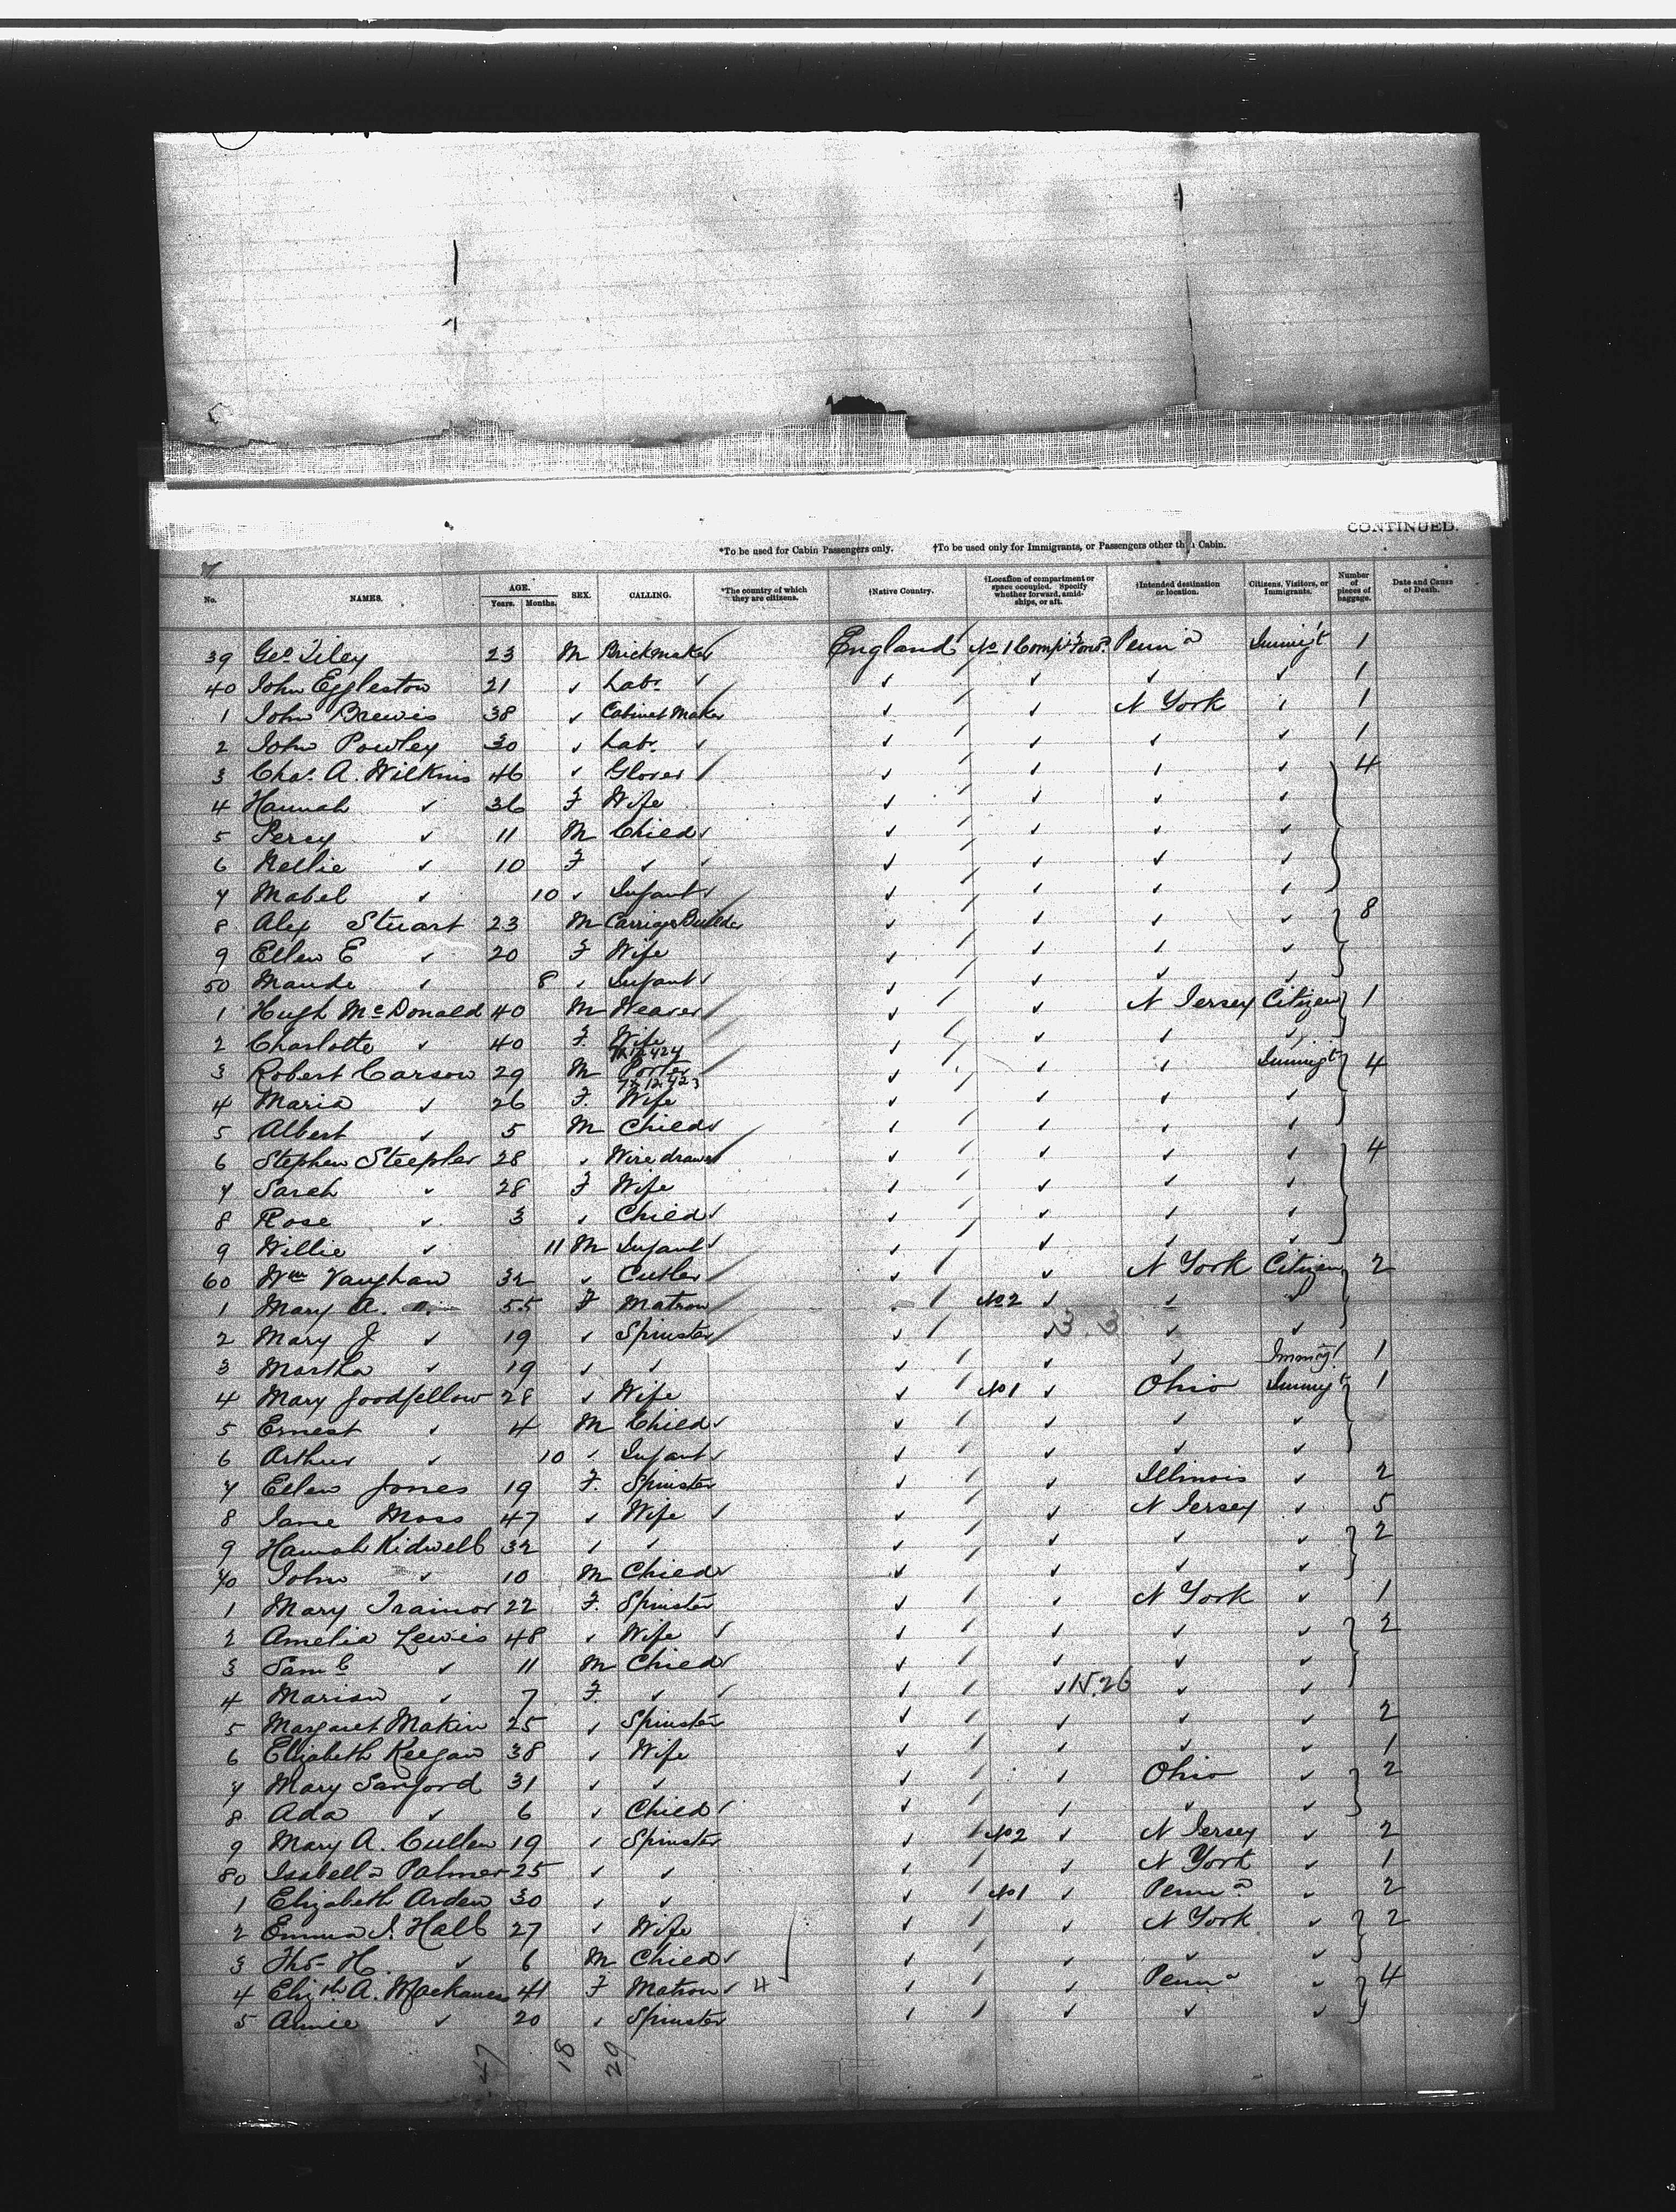 CONTINUED.
*To be used for Cabin Passengers only. †To be used only for Immigrants, or Passengers other than Cabin.
No. NAMES. AGE. Years. Months. SEX. CALLING. *The country of which they are citizens. †Native Country. †Location of compartment or space occupied. Specify whether forward, amidships, or aft. †Intended destination or location. Citizens, Visitors, or Immigrants. Number of pieces of baggage. Date and Cause of Death.
39 Geo Tiley 23 M Brickmaker England No 1 Compt Forwd Penna Immigt 1
40 John Eggleston 21 ✓ Labr ✓ ✓ ✓ ✓ 1
1 John Brewis 38 ✓ Cabinet Maker ✓ ✓ N York ✓ 1
2 John Powley 30 ✓ Labr ✓ ✓ ✓ ✓ 1
3 Chas. A. Wilkins 46 ✓ Glover ✓ ✓ ✓ ✓ 4
4 Hannah ✓ 36 F Wife ✓ ✓ ✓ ✓
5 Percy ✓ 11 M Child ✓ ✓ ✓ ✓
6 Nellie ✓ 10 F ✓ ✓ ✓ ✓ ✓
7 Mabel ✓ 10 ✓ Infant ✓ ✓ ✓ ✓
8 Alex Stuart 23 M Carriage Builder ✓ ✓ ✓ ✓ 8
9 Ellen E ✓ 20 F Wife ✓ ✓ ✓ ✓
50 Maude ✓ 8 ✓ Infant ✓ ✓ ✓ ✓
1 Hugh McDonald 40 M Weaver ✓ ✓ N Jersey Citizen 1
2 Charlotte ✓ 40 F. Wife ✓ ✓ ✓ ✓
3 Robert Carson 29 M Porter ✓ ✓ ✓ Immigt 4
4 Maria ✓ 26 F. Wife ✓ ✓ ✓ ✓
5 Albert ✓ 5 M Child ✓ ✓ ✓ ✓
6 Stephen Steepler 28 ✓ Wire drawer ✓ ✓ ✓ ✓ 4
7 Sarah ✓ 28 F Wife ✓ ✓ ✓ ✓
8 Rose ✓ 3 ✓ Child ✓ ✓ ✓ ✓
9 Willie ✓ 11 M Infant ✓ ✓ ✓ ✓
60 Wm Vaughan 32 ✓ Cutler ✓ ✓ N York Citizen 2
1 Mary A. ✓ 55 F Matron ✓ No 2 ✓ ✓ ✓
2 Mary J ✓ 19 ✓ Spinster ✓ ✓ 3.3 ✓ ✓
3 Martha ✓ 19 ✓ ✓ ✓ ✓ ✓ Immigt 1
4 Mary Goodfellow 28 ✓ Wife ✓ No 1 ✓ Ohio Immigt 1
5 Ernest ✓ 4 M Child ✓ ✓ ✓ ✓
6 Arthur ✓ 10 ✓ Infant ✓ ✓ ✓ ✓
7 Ellen Jones 19 F. Spinster ✓ ✓ Illinois ✓ 2
8 Jane Moss 47 ✓ Wife ✓ ✓ N Jersey ✓ 5
9 Hannah Kidwell 32 ✓ ✓ ✓ ✓ ✓ ✓ 2
70 John ✓ 10 M Child ✓ ✓ ✓ ✓
1 Mary Trainor 22 F. Spinster ✓ ✓ N York ✓ 1
2 Amelia Lewis 48 ✓ Wife ✓ ✓ ✓ ✓ 2
3 Saml ✓ 11 M Child ✓ ✓ ✓ ✓
4 Marian ✓ 7 F. ✓ ✓ ✓ ✓ ✓
5 Margaret Makin 25 ✓ Spinster ✓ ✓ ✓ ✓ 2
6 Elizabeth Keegan 38 ✓ Wife ✓ ✓ ✓ ✓ 1
7 Mary Sanford 31 ✓ ✓ ✓ ✓ Ohio ✓ 2
8 Ada ✓ 6 ✓ Child ✓ ✓ ✓ ✓
9 Mary A. Cullen 19 ✓ Spinster ✓ No 2 ✓ N Jersey ✓ 2
80 Isabella Palmer 25 ✓ ✓ ✓ ✓ N York ✓ 1
1 Elizabeth Arden 30 ✓ ✓ ✓ No 1 ✓ Penna ✓ 2
2 Emma J. Hall 27 ✓ Wife ✓ ✓ N York ✓ 2
3 Thos H. ✓ 6 M Child ✓ ✓ ✓ ✓
4 Elizth A. Mackaness 41 F Matron 4 ✓ ✓ Penna ✓ 4
5 Annie ✓ 20 ✓ Spinster ✓ ✓ ✓ ✓
47 18 29